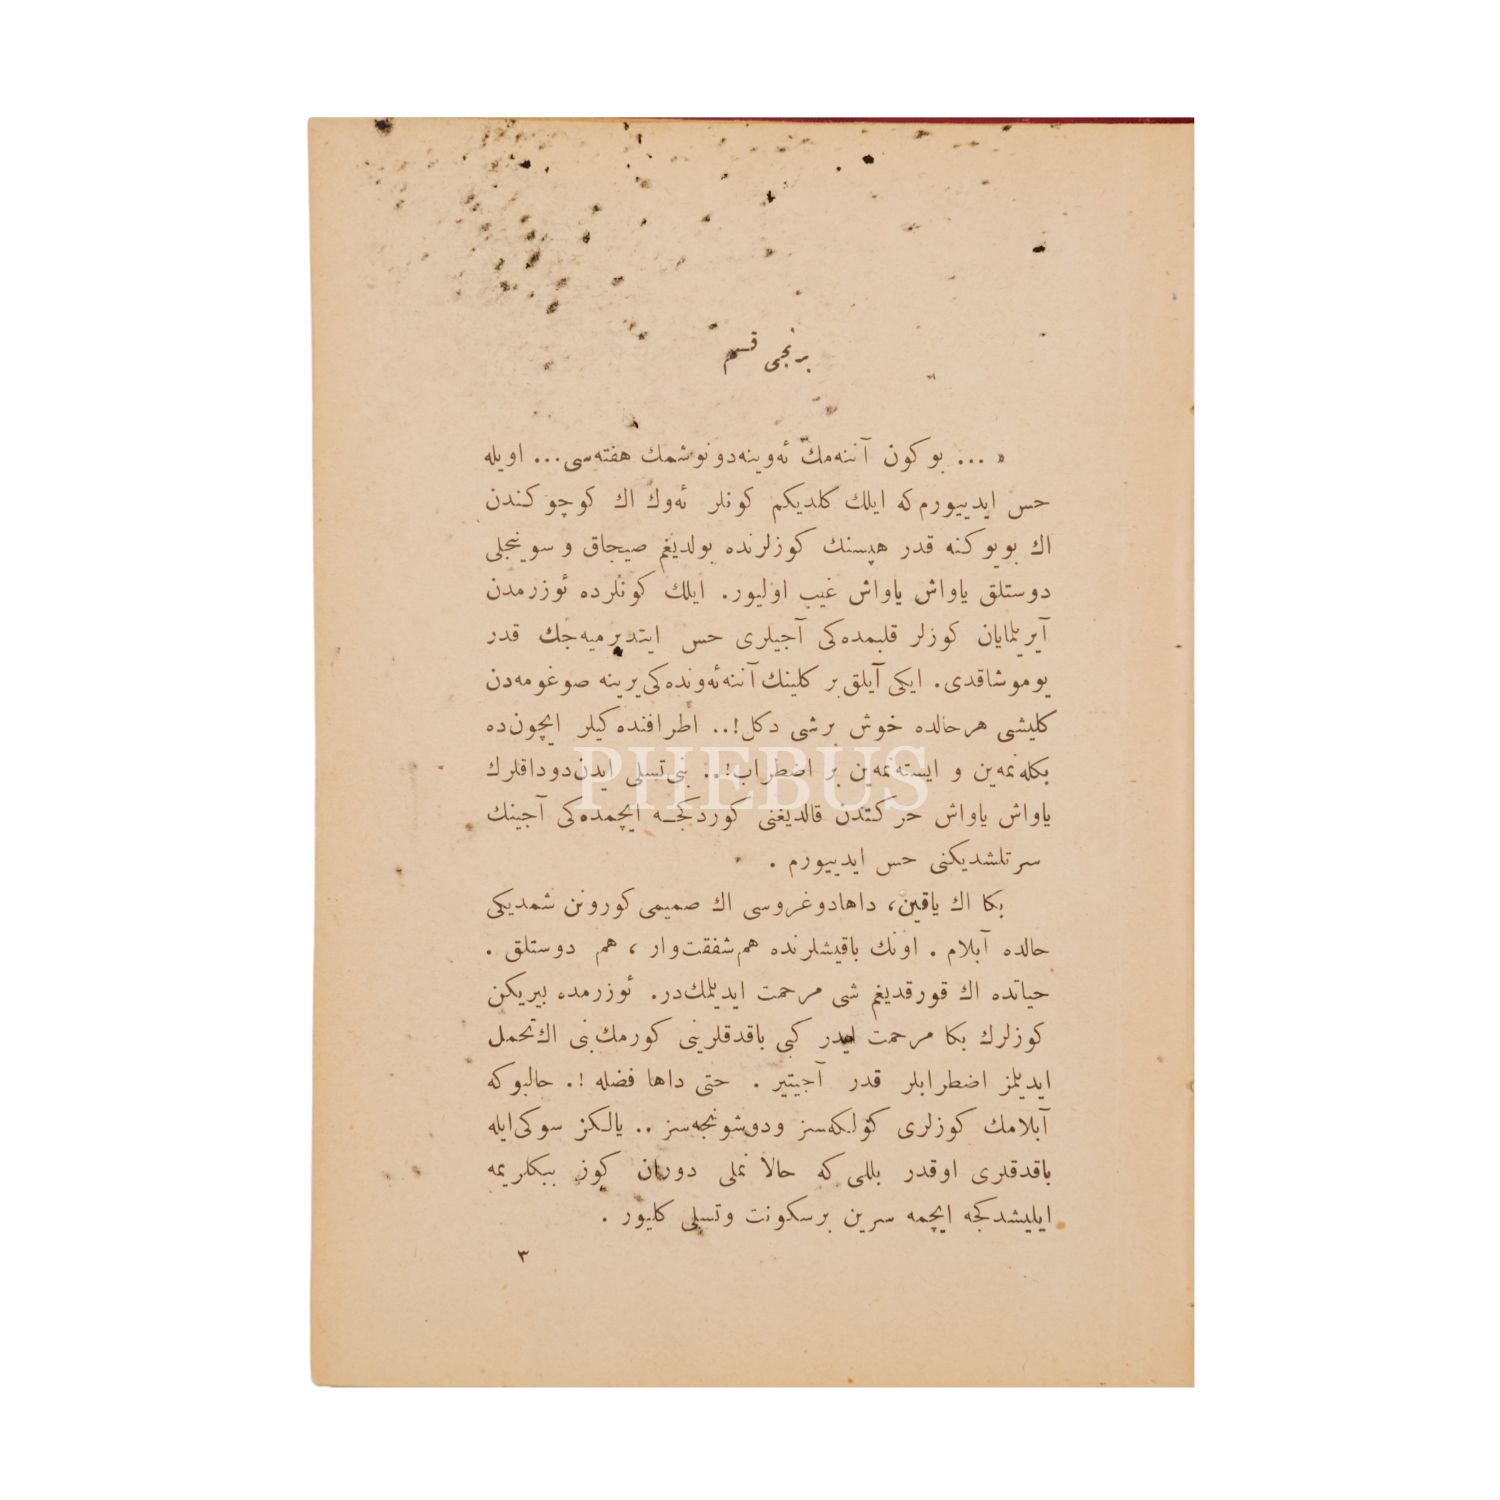 برنجی قسم
« ... بو كون آننه‌مك ئه‌وینه دونوشمك هفته‌سی ... اویله
حس ایدییورم كه ایلك كلدیكم كونلر ئه‌وك اك كوچوكندن
اك بویوكنه قدر هپسنك كوزلرنده بولدیغم صیجاق و سوینجلی
دوستلق یاواش یاواش غیب اولیور. ایلك كونلرده ئوزرمدن
آیریلمایان كوزلر قلبمده‌كی آجیلری حس ایتدیرمیه‌جك قدر
یوموشاقدی. ایكی آیلق بر كلینك آننه ئه‌ونده‌كی یرینه صوغومه‌دن
كلیشی هر حالده خوش بر شی دكل!.. اطرافنده‌كیلر ایچون ده
بكله‌نمه‌ین و ایسته‌نمه‌ین بر اضطراب!.. بنی تسلی ایدن دوداقلرك
یاواش یاواش حركتدن قالدیغنی كوردكجه ایچمده‌كی آجینك
سرتلشدیكنی حس ایدییورم .
بكا اك یاقین، داها دوغروسی اك صمیمی كورونن شمدیكی
حالده آبلام . اونك باقیشلرنده هم شفقت وار ، هم دوستلق .
حیاتده اك قورقدیغم شی مرحمت ایدیلمك‌در. ئوزرمده بیریكن
كوزلرك بكا مرحمت ایدر كبی باقدقلرینی كورمك بنی اك تحمل
ایدیلمز اضطرابلر قدر آجیتیر . حتی داها فضله !. حالبوكه
آبلامك كوزلری كؤلكه‌سز و دوشونجه‌سز .. یالكز سوكی ایله
باقدقلری اوقدر بللی كه حالا نملی دوران كوز ببكلریمه
ایلیشدكجه ایچمه سرین بر سكونت و تسلی كلیور .
٣
PHEBUS